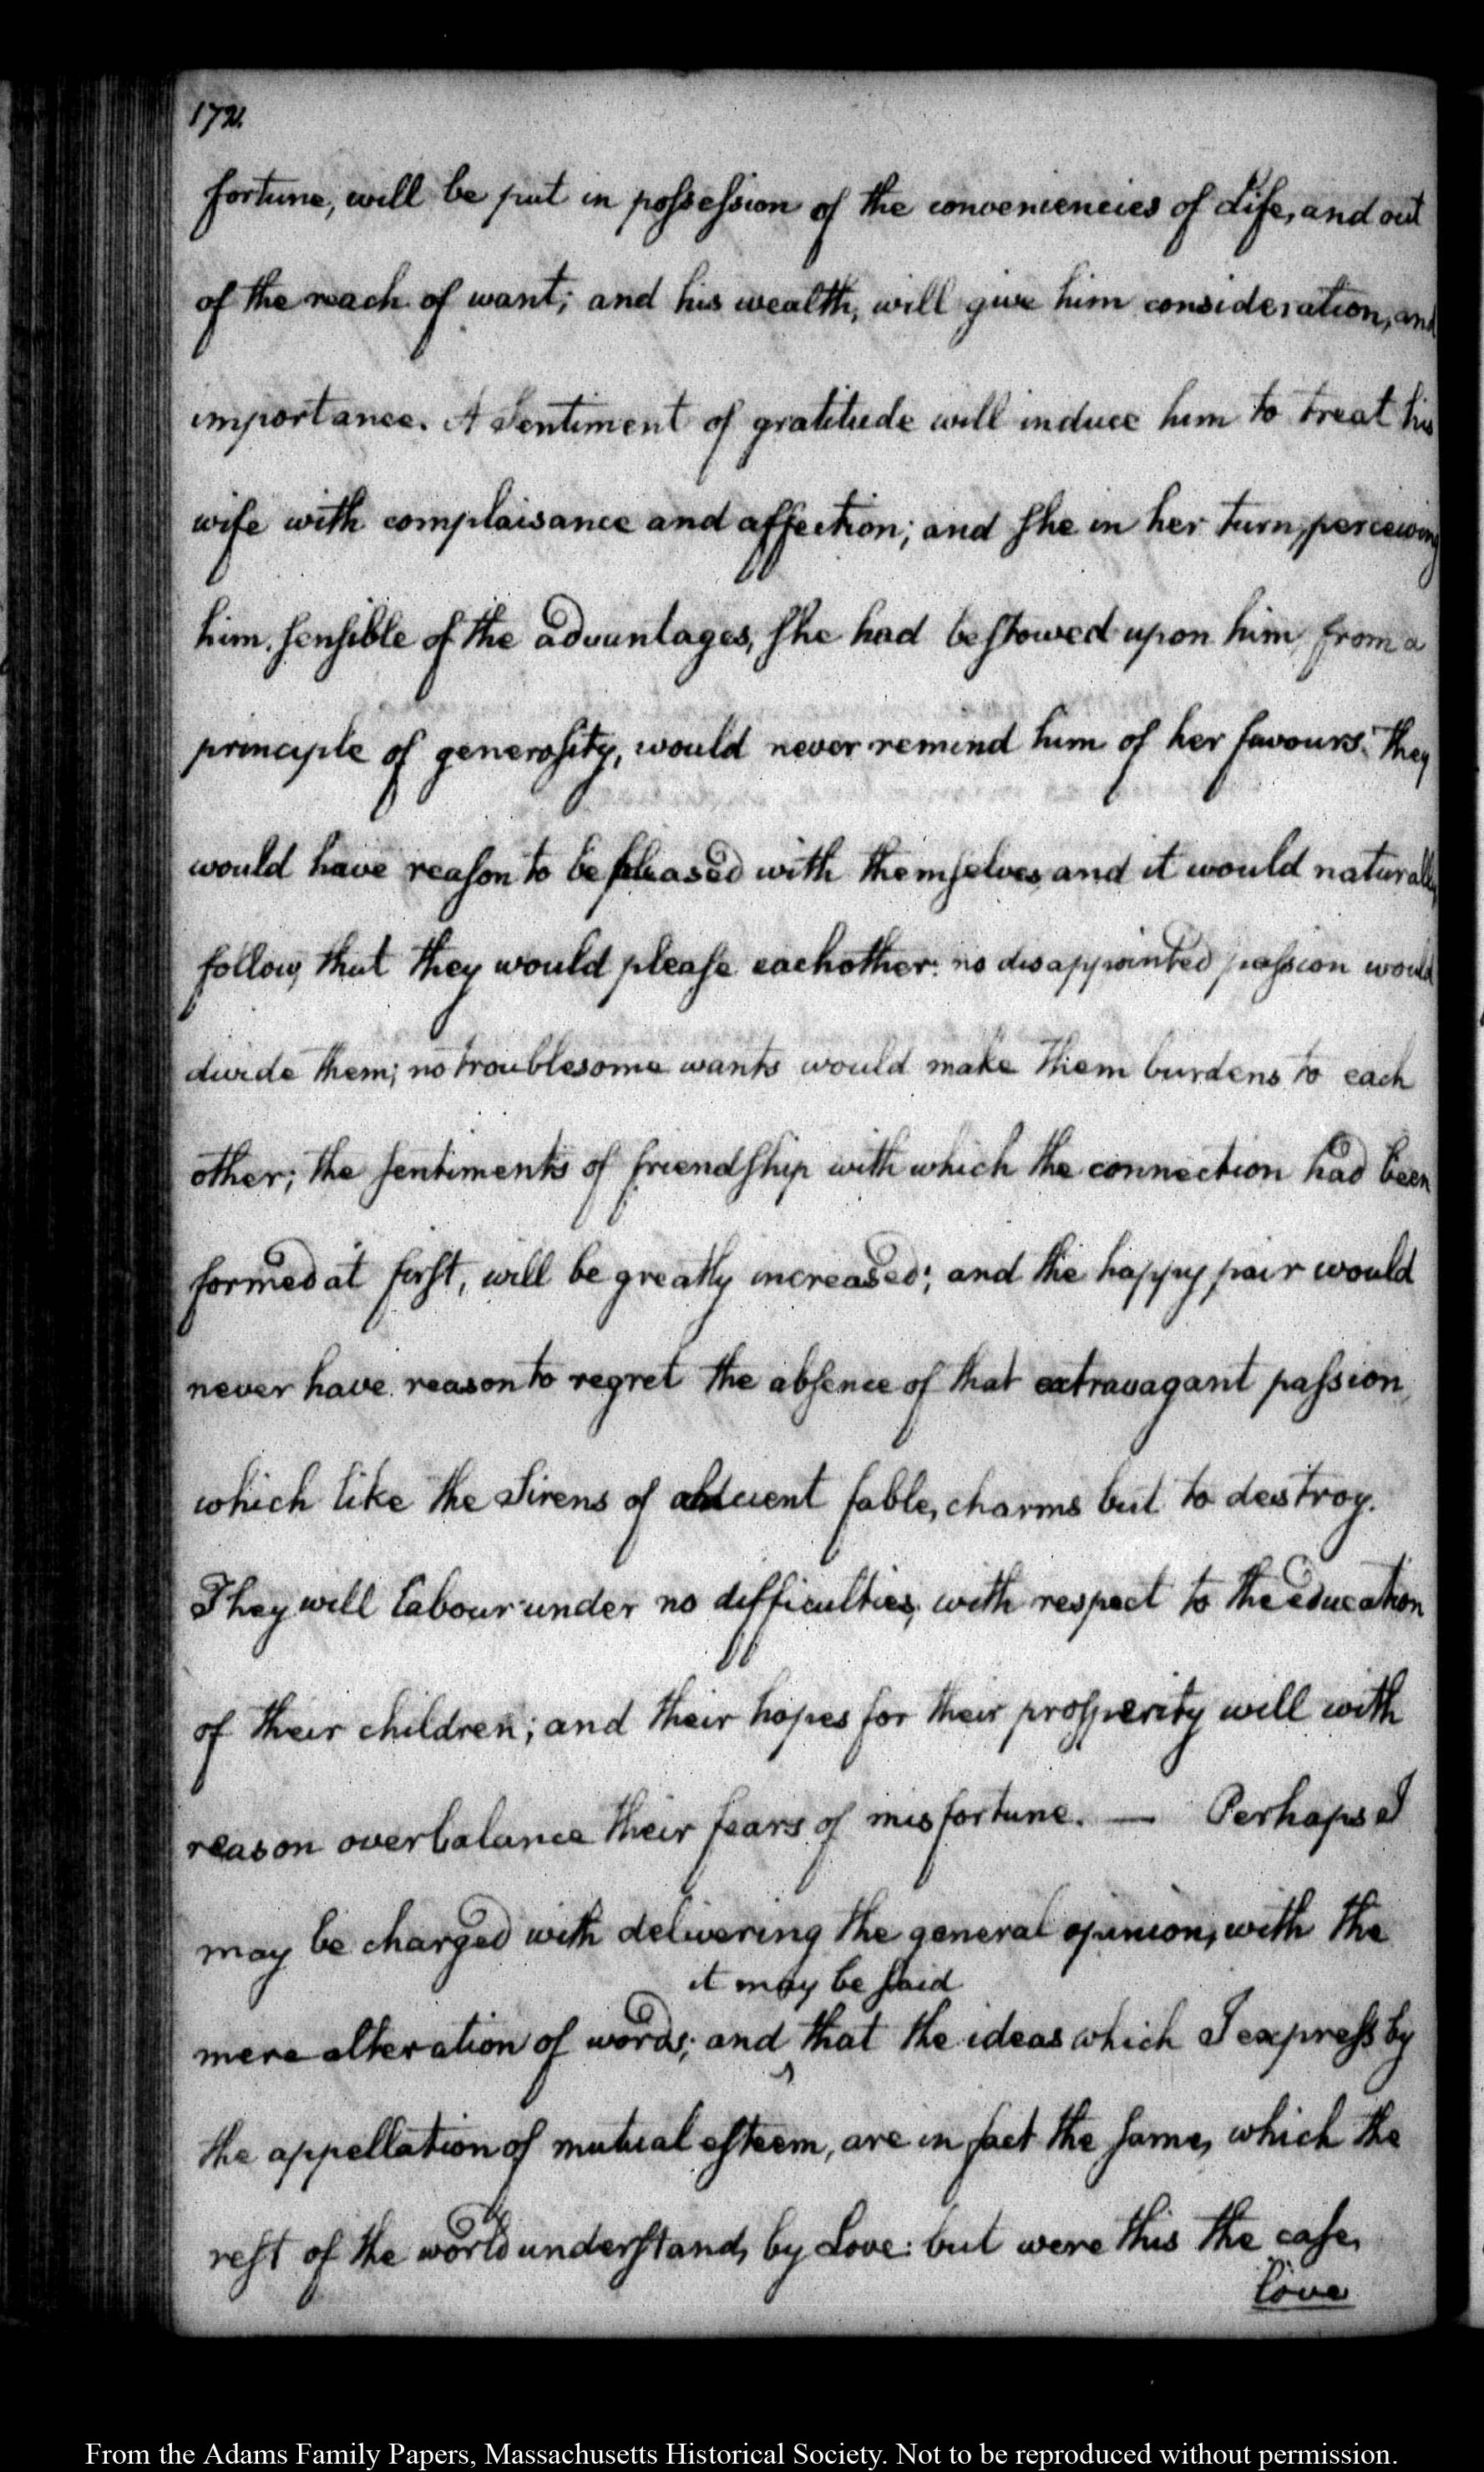 172.
fortune, will be put in possession of the conveniencies of Life, and out
of the reach of want; and his wealth, will give him consideration, and
importance. A Sentiment of gratitude will induce him to treat his
wife with complaisance and affection; and she in her turn, perceiving
him, sensible of the advantages, she had bestowed upon him, from a
principle of generosity, would never remind him of her favours. They
would have reason to be pleased with themselves, and it would naturally
follow, that they would please eachother: no disappointed passion would
divide them; no troublesome wants would make them burdens to each
other; the sentiments of friendship with which the connection had been
formed at first, will be greatly increased; and the happy pair would
never have reason to regret the absence of that extravagant passion,
which like the Sirens of ancient fable, charms but to destroy.
They will labour under no difficulties, with respect to the education
of their children; and their hopes for their prosperity will with
reason overbalance their fears of misfortune. — Perhaps I
may be charged with delivering the general opinion, with the
it may be said
mere alteration of words; and ‸ that the ideas which I express by
the appellation of mutual esteem, are in fact the same, which the
rest of the world understand, by Love: but were this the case,
love
From the Adams Family Papers, Massachusetts Historical Society. Not to be reproduced without permission.